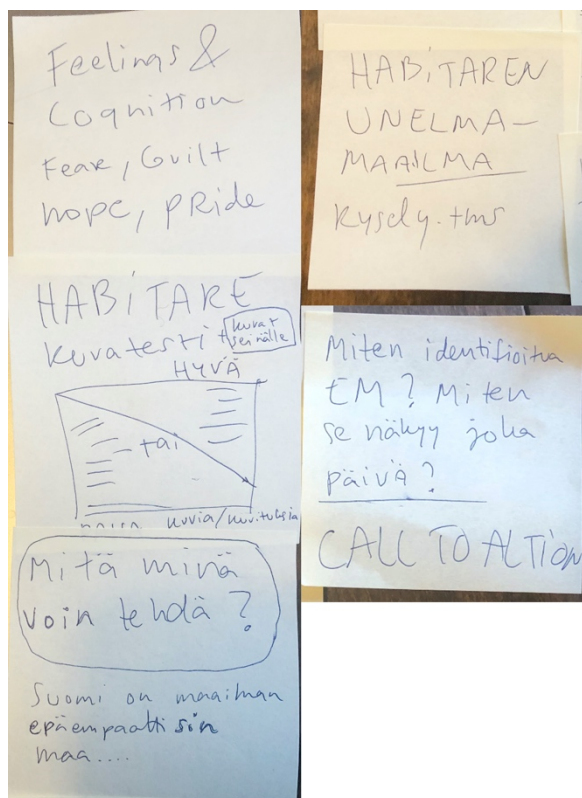 Feelings &
Cognition
Fear, Guilt
hope, pRide
HABITARE
kuvatestit
kuvat
seinälle
HYVÄ
tai
kuvia/kuvituksia
Mitä minä
voin tehdä?
Suomi on maailman
epäempaattisin
maa....
HABITAREN
UNELMA-
MAAILMA
kysely.tms
Miten identifioitua
EM? Miten
se näkyy joka
päivä?
CALL TO ACTION